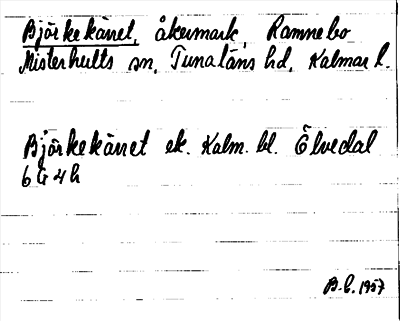 Björkekärret, åkermark, Ramnebo
Misterhults sn, Tunaläns hd, Kalmar l.
Björkekärret ek. Kalm. bl. Ölvedal
6G4h
B.L. 1957